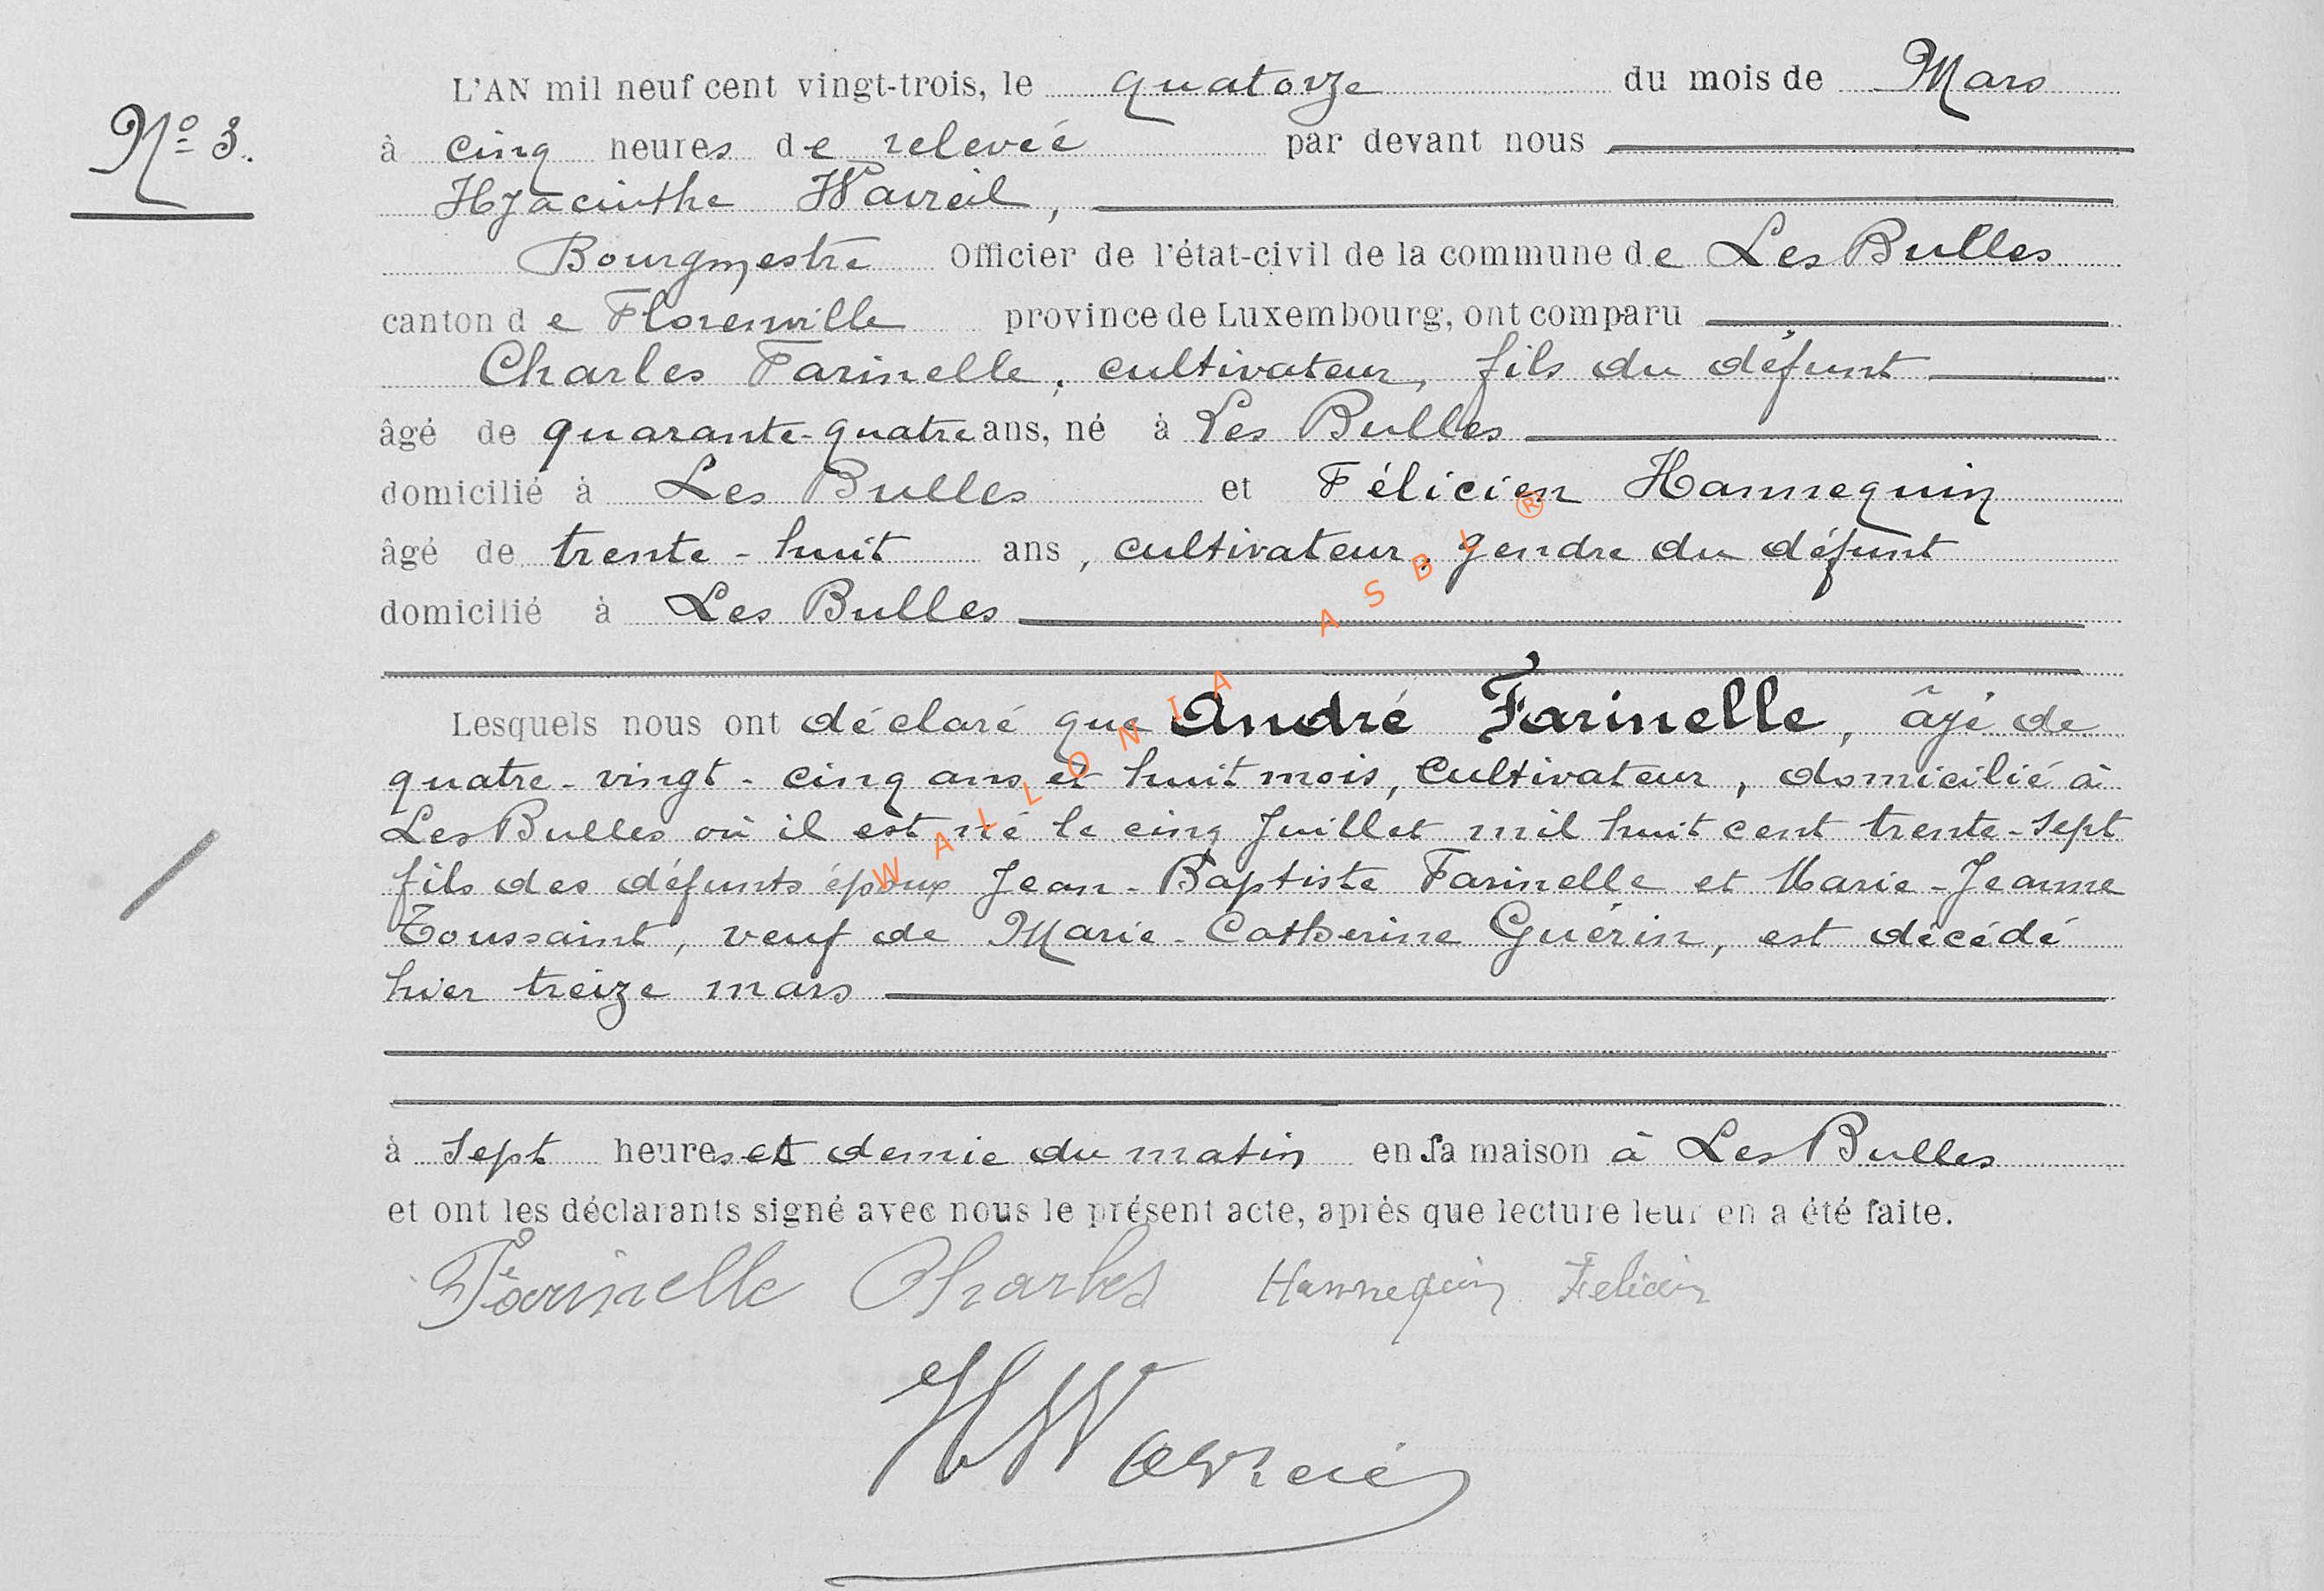 L'AN mil neuf cent vingt-trois, le quatorze du mois de Mars
N° 3.
à cinq heures de relevée par devant nous
Hyacinthe Wavreil,
Bourgmestre Officier de l'état-civil de la commune de Les Bulles
canton de Florenville province de Luxembourg, ont comparu
Charles Farinelle, cultivateur, fils du défunt
âgé de quarante-quatre ans, né à Les Bulles
domicilié à Les Bulles et Félicien Hannequin
âgé de trente-huit ans, cultivateur, gendre du défunt
domicilié à Les Bulles
Lesquels nous ont déclaré que André Farinelle, âgé de
quatre-vingt-cinq ans et huit mois, cultivateur, domicilié à
Les Bulles où il est né le cinq Juillet mil huit cent trente-sept
fils des défunts époux Jean-Baptiste Farinelle et Marie-Jeanne
Toussaint, veuf de Marie-Catherine Guérin, est décédé
hier treize mars
à sept heures et demie du matin en sa maison à Les Bulles
et ont les déclarants signé avec nous le présent acte, après que lecture leur en a été faite.
Farinelle Charles Hannequin Felicien
WALLONIA ASBL ®